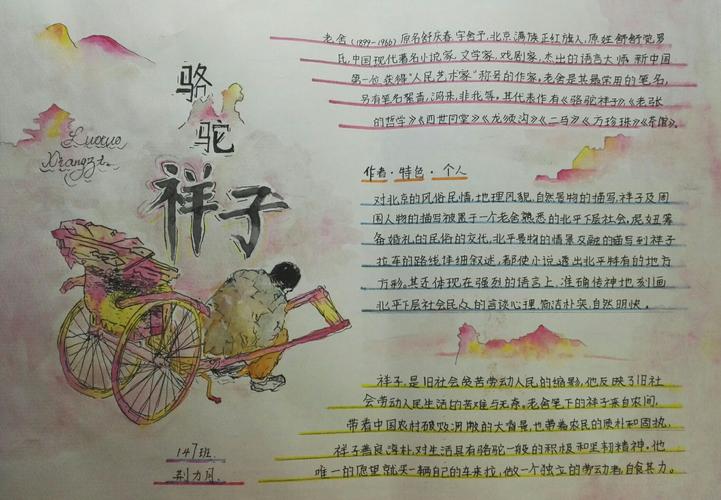 骆
驼
祥子
Luotuo
Xiangzi
147班
荆力凡
老舍(1899-1966)原名舒庆春,字舍予,北京满族正红旗人,原姓舒舒觉罗
氏,中国现代著名小说家、文学家、戏剧家,杰出的语言大师,新中国
第一位获得"人民艺术家"称号的作家。老舍是其最常用的笔名,
另有笔名絜青、鸿来、非我等。其代表作有《骆驼祥子》《老张
的哲学》《四世同堂》《龙须沟》《二马》《方珍珠》《茶馆》。
作者·特色·个人
对北京的风俗民情,地理风貌,自然景物的描写,祥子及周
围人物的描写被置于一个老舍熟悉的北平下层社会,虎妞筹
备婚礼的民俗的交代,北平景物的情景交融的描写到祥子
拉车的路线详细叙述,都使小说透出北平特有的地方
方形。其还体现在强烈的语言上,准确传神地刻画
北平下层社会民众的言谈心理,简洁朴实,自然明快。
祥子,是旧社会受苦劳动人民的缩影,他反映了旧社
会劳动人民生活的苦难与无奈。老舍笔下的祥子来自农间,
带着中国农村破败凋敝的大背景,也带着农民的质朴和固执,
祥子善良淳朴,对生活具有骆驼一般的积极和坚韧精神。他
唯一的愿望就买一辆自己的车来拉,做一个独立的劳动者,自食其力。